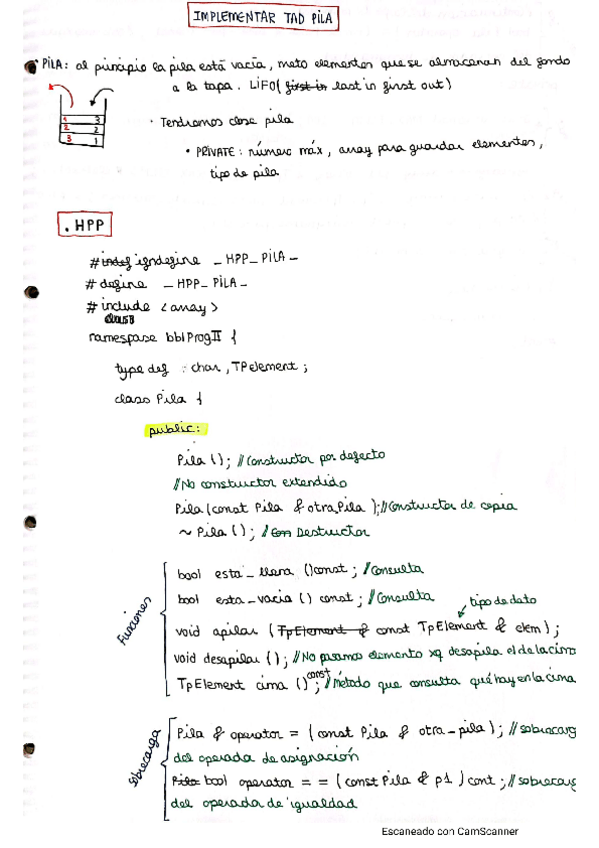 IMPLEMENTAR TAD PILA
PILA: al principio la pila está vacía, meto elementos que se almacenan del fondo
a la tapa. LIFO( first in last in first out)
1 3
2 2
3 1
· Tendremos clase pila
• PRIVATE: número máx, array para guardar elementos,
tipo de pila
.HPP
#indef ifndefine _HPP_PILA_
#define _HPP_PILA_
#include <array>
class
namespase bblProgII {
type def char, TPelement;
class Pila {
public:
Pila (); //Constructor por defecto
//No constructor extendido
Pila (const Pila & otra_Pila ); //Constructor de copia
~ Pila (); // Con Destructor
Funciones
bool esta_llena ()const; //Consulta
bool esta_vacia () const; //Consulta
tipo de dato
void apilar (TpElement & const TpElement & elem);
void desapilar (); //No pasamos elemento xq desapila el de la cima
TpElement cima () const; //método que consulta qué hay en la cima
Sobrecarga
Pila & operator = (const Pila & otra_pila); //sobrecarg
del operada de asignación
Pila bool operator == (const Pila & p1 ) cont; //sobrecarg
del operador de igualdad
Escaneado con CamScanner